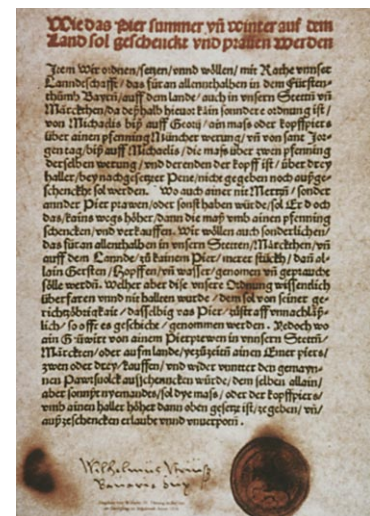 Wie das Pier summer vñ winter auf dem
Land sol geschenckt vnd prauen werden
Item Wir ordnen/setzen/vnnd wöllen/mit Rathe vnnser
Lanndtschafft/das für an allennthalben in dem Fürsten-
thůmb Bayrn/auff dem lande/auch in vnsern Stettñ vñ
Märckthen/da deßhalb hieuor kain sonndere ordnung ist/
von Michaelis biß auff Georij/ain mass oder kopffpiers
über ainen pfenning Müncher werung/vñ von sant Jor-
gen tag/biß auff Michaelis/die mass über zwen pfenning
derselben werung/vnd derenden der kopff ist/über drey
haller/bey nachgesetzter Pene/nicht gegeben noch außge-
schenckht sol werden. Wo auch ainer nit Mertzñ/sonder
annder Pier prawen/oder sonst haben würde/sol Er doch
das/kains wegs höher/dann die maß vmb ainen pfenning
schencken/vnd verkauffen. Wir wöllen auch sonderlichen/
das für an allenthalben in vnsern Stetten/Märckthen/vñ
auff dem Lannde/zů kainem Pier/merer stückh/dañ al-
lain Gersten/Hopffen/vñ wasser/genomen vñ gepraucht
sölle werdñ. Welher aber dise vnsere Ordnung wissendlich
überfaren vnnd nit hallten wurde/dem sol von seiner ge-
richtzöbrigkait/dasselbig vas Pier/zůstraff vnnachläß-
lich/so offt es geschicht/genommen werden. Yedoch wo
ain Güwirt von ainem Pierprewen in vnnsern Stettñ/
Märckten/oder aufm lande/yezůzeitñ ainen Emer piers/
zwen oder drey/kauffen/vnd wider vnntter den gemayn-
nen Pawrsuolck außschencken würde/dem selben allain/
aber sonnst nyemandes/sol dye mass/oder der kopffpiers/
vmb ainen haller höher dann oben gesetzt ist/ze geben/vñ/
außzeschencken erlaubt vnnd vnuerpotñ.